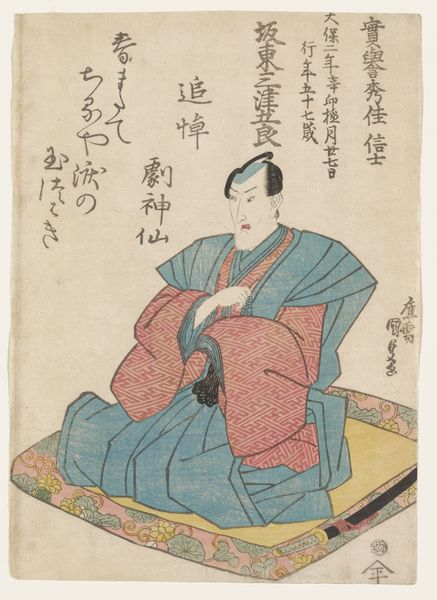 實譽秀佳信士
天保二年辛卯極月廿七日
行年五十七歳
坂東三津五良
追悼
劇神仙
春またて
ちるや
涙の
玉つはき
應需
國貞画